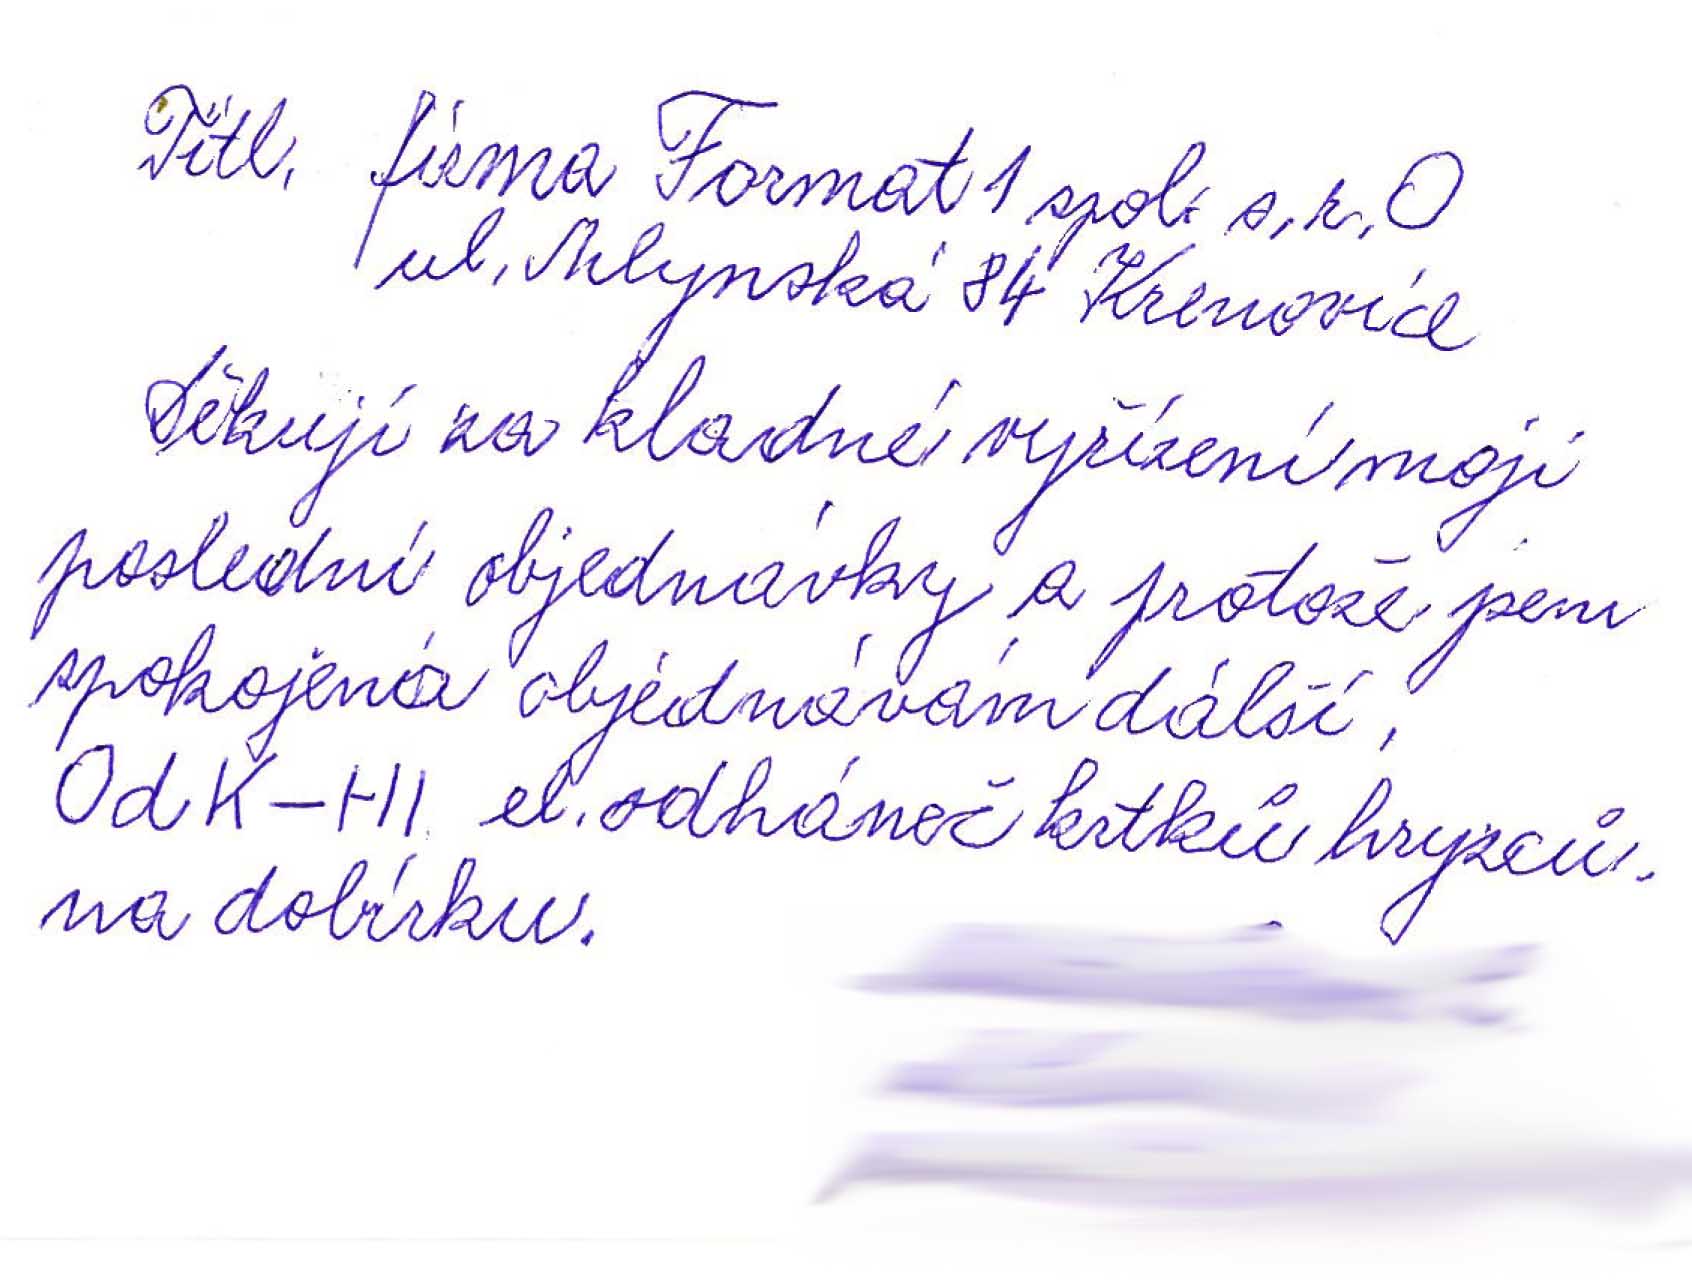 Titl. firma Formát 1 spol. s.r.O
ul. Mlynská 84 Krenovice
Děkuji za kladné vyřízení moji
poslední objednávky a protože jsem
spokojená objednávám další,
Od K-HI el. odháneč krtků hryzců.
na dobírku.